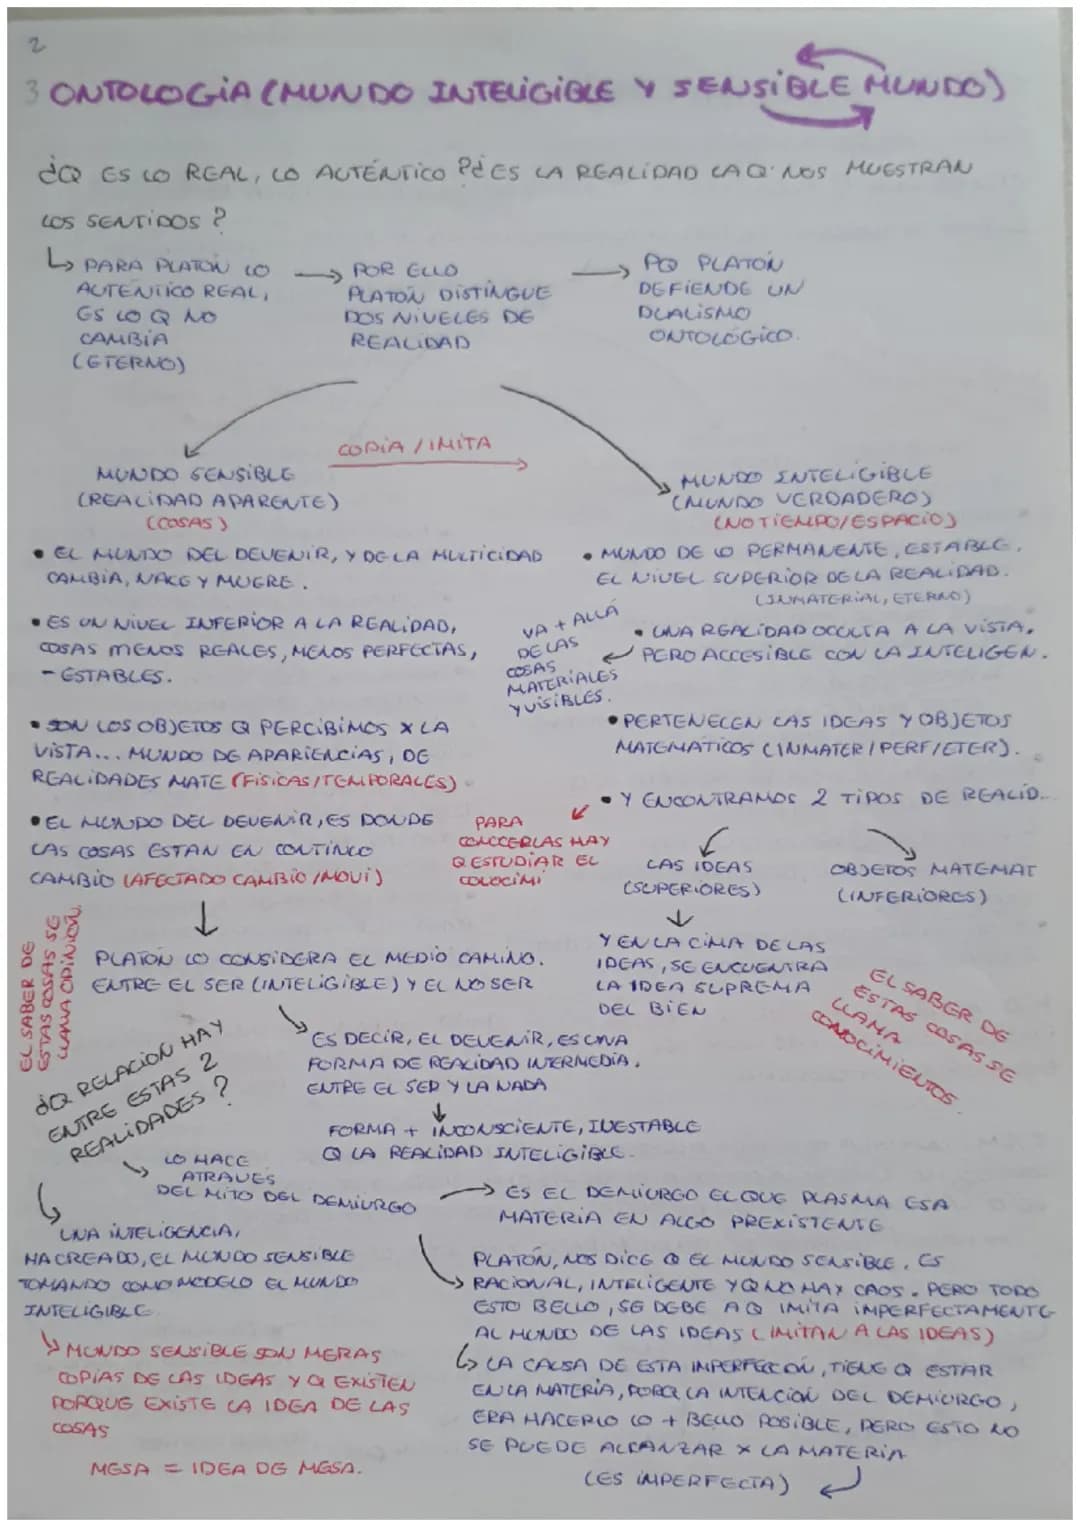 2
3 ONTOLOGÍA (MUNDO INTELIGIBLE Y SENSIBLE MUNDO)
¿Q ES LO REAL, LO AUTÉNTICO? ¿ES LA REALIDAD LA Q NOS MUESTRAN
LOS SENTIDOS?
PARA PLATÓN LO
AUTÉNTICO REAL,
ES LO Q NO
CAMBIA
(ETERNO)
POR ELLO
PLATÓN DISTINGUE
DOS NIVELES DE
REALIDAD
PQ PLATÓN
DEFIENDE UN
DUALISMO
ONTOLÓGICO.
COPIA / IMITA
MUNDO SENSIBLE
(REALIDAD APARENTE)
(COSAS)
• EL MUNDO DEL DEVENIR, Y DE LA MULTICIDAD
CAMBIA, NACE Y MUERE.
• ES UN NIVEL INFERIOR A LA REALIDAD,
COSAS MENOS REALES, MENOS PERFECTAS,
- ESTABLES.
• SON LOS OBJETOS Q PERCIBIMOS X LA
VISTA... MUNDO DE APARIENCIAS, DE
REALIDADES MATE (FÍSICAS/TEMPORALES)
• EL MUNDO DEL DEVENIR, ES DONDE
LAS COSAS ESTAN EN CONTINUO
CAMBIO (AFECTADO CAMBIO/MOVI)
MUNDO INTELIGIBLE
(MUNDO VERDADERO)
(NO TIEMPO/ESPACIO)
• MUNDO DE LO PERMANENTE, ESTABLE,
EL NIVEL SUPERIOR DE LA REALIDAD.
(INMATERIAL, ETERNO)
• UNA REALIDAD OCULTA A LA VISTA,
PERO ACCESIBLE CON LA INTELIGEN.
VA + ALLÁ
DE LAS
COSAS
MATERIALES
Y VISIBLES.
• PERTENECEN LAS IDEAS Y OBJETOS
MATEMATICOS (INMATER/PERF/ETER).
• Y ENCONTRAMOS 2 TIPOS DE REALID...
PARA
CONOCERLAS HAY
Q ESTUDIAR EL
COLOCIMI
LAS IDEAS
(SUPERIORES)
OBJETOS MATEMAT
(INFERIORES)
Y EN LA CIMA DE LAS
IDEAS, SE ENCUENTRA
LA IDEA SUPREMA
DEL BIEN
EL SABER DE
ESTAS COSAS SE
LLAMA
CONOCIMIENTOS
EL SABER DE
ESTAS COSAS SE
LLAMA OPINIÓN.
PLATÓN LO CONSIDERA EL MEDIO CAMINO.
ENTRE EL SER (INTELIGIBLE) Y EL NO SER
ES DECIR, EL DEVENIR, ES UNA
FORMA DE REALIDAD INTERMEDIA,
ENTRE EL SER Y LA NADA
FORMA + INCONSCIENTE, INESTABLE
Q LA REALIDAD INTELIGIBLE.
¿Q RELACIÓN HAY
ENTRE ESTAS 2
REALIDADES?
LO HACE
ATRAVES
DEL MITO DEL DEMIURGO
ES EL DEMIURGO EL QUE PLASMA ESA
MATERIA EN ALGO PREXISTENTE
UNA INTELIGENCIA,
HA CREADO, EL MUNDO SENSIBLE
TOMANDO COMO MODELO EL MUNDO
INTELIGIBLE
MUNDO SENSIBLE SON MERAS
COPIAS DE LAS IDEAS Y Q EXISTEN
PORQUE EXISTE LA IDEA DE LAS
COSAS
MESA = IDEA DE MESA.
PLATÓN, NOS DICE Q EL MUNDO SENSIBLE, ES
RACIONAL, INTELIGENTE Y Q NO HAY CAOS. PERO TODO
ESTO BELLO, SE DEBE A Q IMITA IMPERFECTAMENTE
AL MUNDO DE LAS IDEAS (IMITAN A LAS IDEAS)
LA CAUSA DE ESTA IMPERFECCIÓN, TIENE Q ESTAR
EN LA MATERIA, PORQ LA INTENCIÓN DEL DEMIURGO,
ERA HACERLO LO + BELLO POSIBLE, PERO ESTO NO
SE PUEDE ALCANZAR X LA MATERIA
(ES IMPERFECTA)